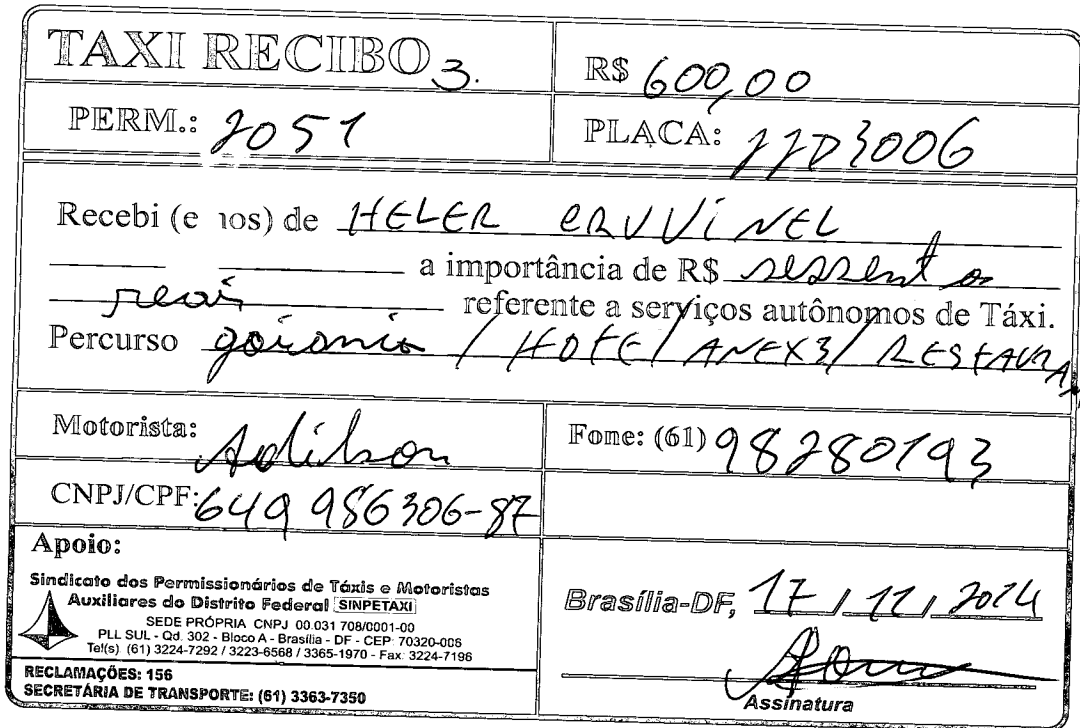 TAXI RECIBO 3.
R$ 600,00
PERM.: 2051
PLACA: JJD3006
Recebi (e nos) de HELER CRUVINEL
a importância de R$ sessenta
reais referente a serviços autônomos de Táxi.
Percurso goiania / HOTEL ANEX3 / RESTAURAN
Motorista: Adilson
Fone: (61) 98280193
CNPJ/CPF: 649 986306-87
Apoio:
Sindicato dos Permissionários de Táxis e Motoristas
Auxiliares do Distrito Federal SINPETAXI
SEDE PRÓPRIA CNPJ 00.031 708/0001-00
PLL SUL - Qd. 302 - Bloco A - Brasília - DF - CEP: 70320-006
Tel(s). (61) 3224-7292 / 3223-6568 / 3365-1970 - Fax: 3224-7196
RECLAMAÇÕES: 156
SECRETÁRIA DE TRANSPORTE: (61) 3363-7350
Brasília-DF, 17 / 11 / 2014
Assinatura